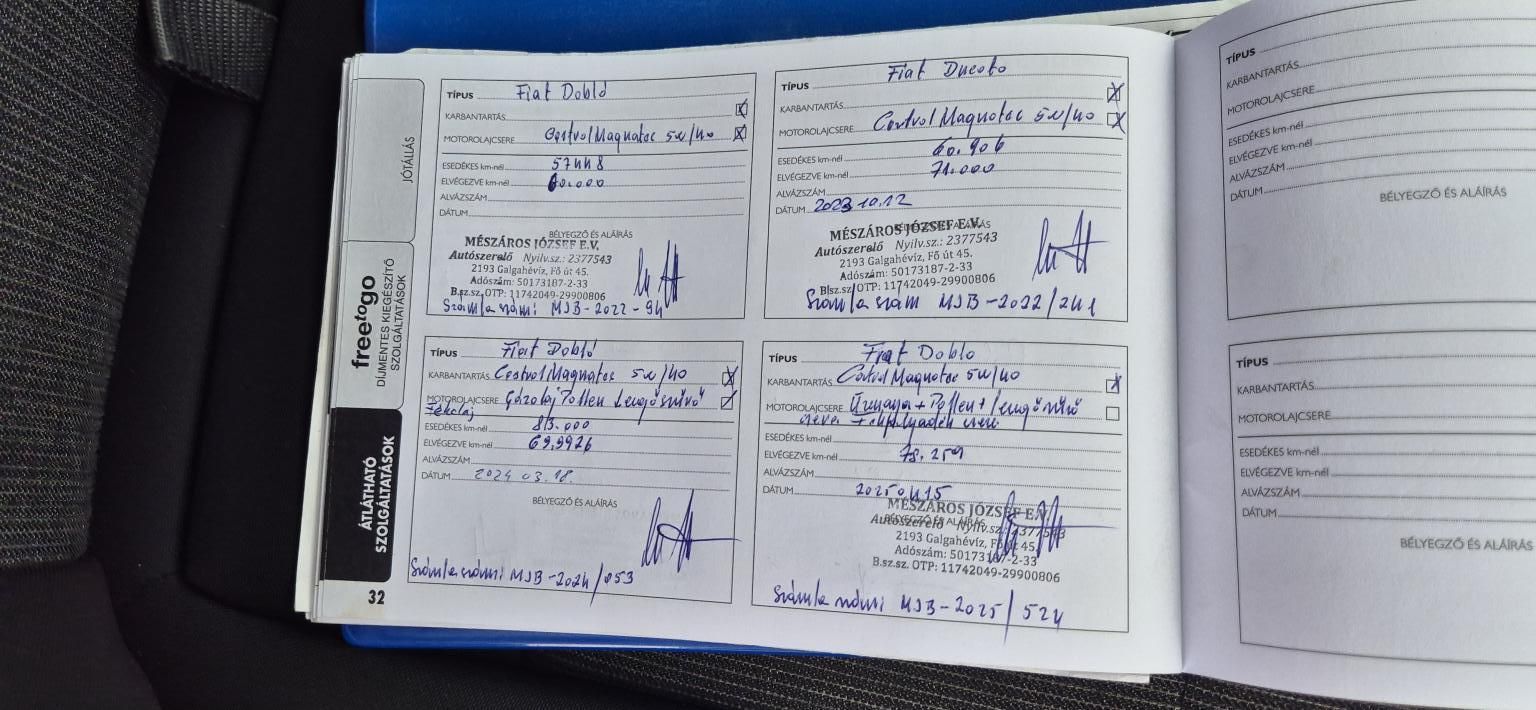 JÓTÁLLÁS
freetogo
DÍJMENTES KIEGÉSZÍTŐ
SZOLGÁLTATÁSOK
ÁTLÁTHATÓ
SZOLGÁLTATÁSOK
32
TÍPUS Fiat Dobló
KARBANTARTÁS
MOTOROLAJCSERE Castrol Magnatec 5w/40
ESEDÉKES km-nél 57448
ELVÉGEZVE km-nél 60.000
ALVÁZSZÁM
DÁTUM
BÉLYEGZŐ ÉS ALÁÍRÁS
MÉSZÁROS JÓZSEF E.V.
Autószerelő Nyilv.sz.: 2377543
2193 Galgahévíz, Fő út 45.
Adószám: 50173187-2-33
B.sz.sz. OTP: 11742049-29900806
Számla számi MJB-2022-94
TÍPUS Fiat Ducato
KARBANTARTÁS
MOTOROLAJCSERE Castrol Magnatec 5w/40
ESEDÉKES km-nél 60.906
ELVÉGEZVE km-nél 71.000
ALVÁZSZÁM
DÁTUM 2023 10.12
BÉLYEGZŐ ÉS ALÁÍRÁS
MÉSZÁROS JÓZSEF E.V.
Autószerelő Nyilv.sz.: 2377543
2193 Galgahévíz, Fő út 45.
Adószám: 50173187-2-33
B.sz.sz. OTP: 11742049-29900806
Számla szám MJB-2022/241
TÍPUS Fiat Dobló
KARBANTARTÁS Castrol Magnatec 5w/40
MOTOROLAJCSERE Gázolaj Pollen Levegőszűrő
Fékolaj
ESEDÉKES km-nél
ELVÉGEZVE km-nél 69.9926
ALVÁZSZÁM
DÁTUM 2024 03.18.
BÉLYEGZŐ ÉS ALÁÍRÁS
Számla számi MJB-2024/053
TÍPUS Fiat Doblo
KARBANTARTÁS Castrol Magnatec 5w/40
MOTOROLAJCSERE + Pollen + Levegőszűrő
csere
ESEDÉKES km-nél
ELVÉGEZVE km-nél 78.259
ALVÁZSZÁM
DÁTUM
BÉLYEGZŐ ÉS ALÁÍRÁS
MÉSZÁROS JÓZSEF E.V.
Autószerelő Nyilv.sz.: 2377543
2193 Galgahévíz, Fő út 45.
Adószám: 50173187-2-33
B.sz.sz. OTP: 11742049-29900806
Számla számi MJB-2025/524
TÍPUS
KARBANTARTÁS
MOTOROLAJCSERE
ESEDÉKES km-nél
ELVÉGEZVE km-nél
ALVÁZSZÁM
DÁTUM
BÉLYEGZŐ ÉS ALÁÍRÁS
TÍPUS
KARBANTARTÁS
MOTOROLAJCSERE
ESEDÉKES km-nél
ELVÉGEZVE km-nél
ALVÁZSZÁM
DÁTUM
BÉLYEGZŐ ÉS ALÁÍRÁS